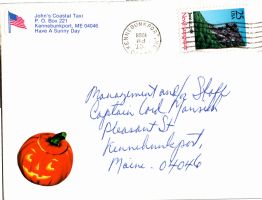 John's Coastal Taxi
P. O. Box 221
Kennebunkport, ME 04046
Have A Sunny Day
KENNEBUNKPORT
Management and/or Staff
Captain Lord Mansion
Pleasant St
Kennebunkport,
Maine. 04046